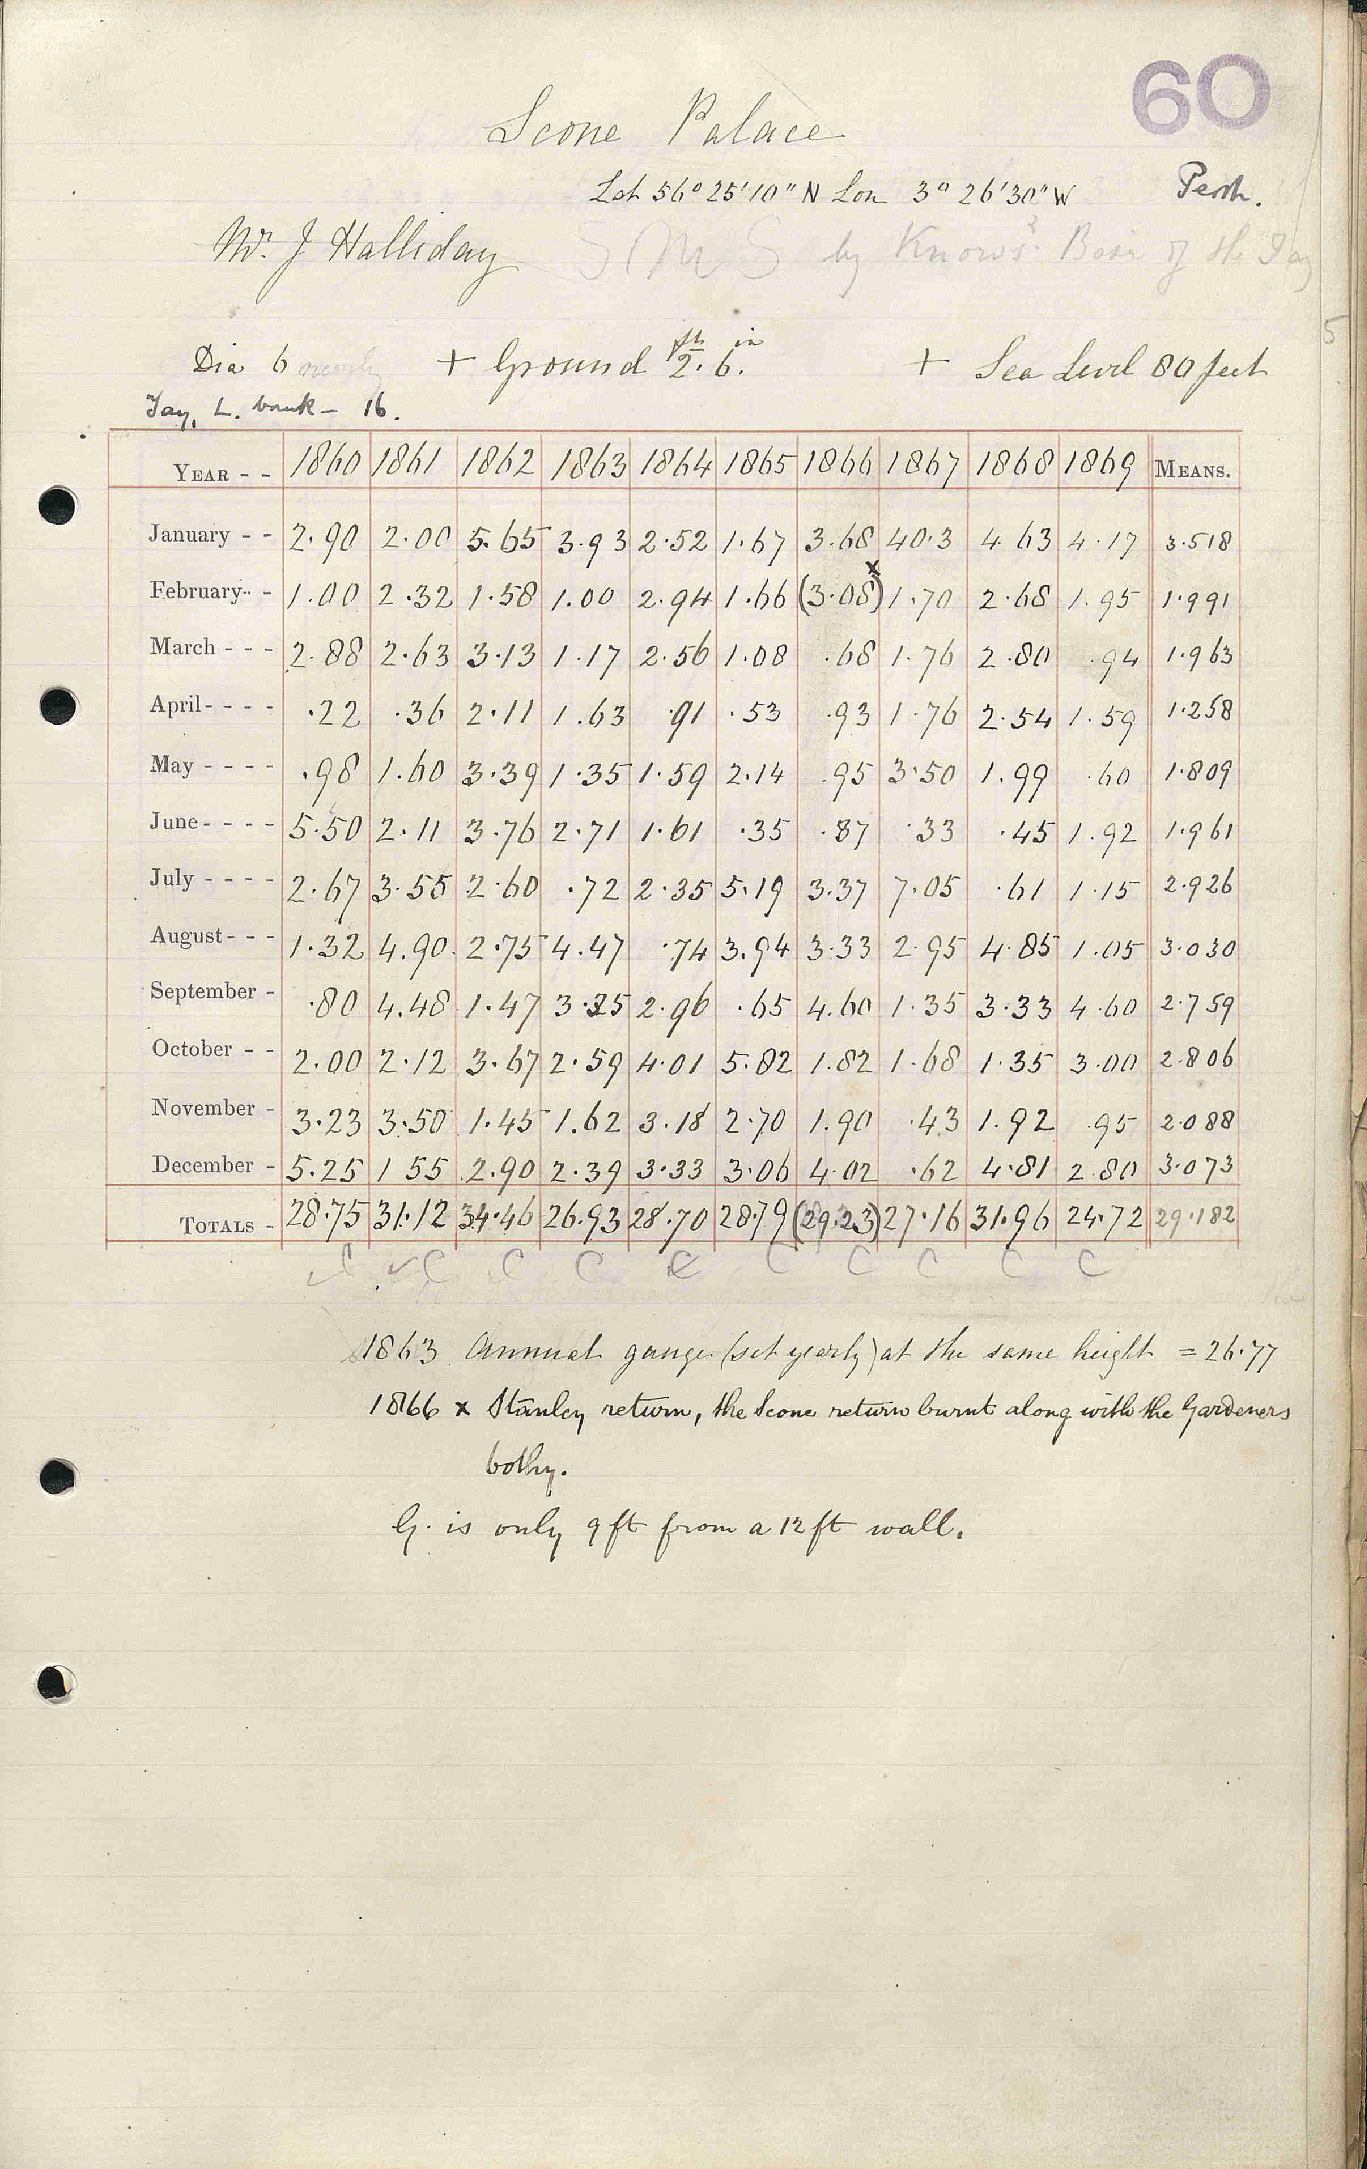 60
Scone Palace
Lat 56° 25' 10" N Lon 3° 26' 30" W Perth.
Mr. J Halliday by Basin of the Tay
Dia 6 nearly + Ground 2 ft. 6 in. + Sea Level 80 feet
Tay, L. bank - 16.
YEAR - - 1860 1861 1862 1863 1864 1865 1866 1867 1868 1869 MEANS.
January - - 2.90 2.00 5.65 3.93 2.52 1.67 3.68 40.3 4 63 4.17 3.518
February - - 1.00 2.32 1.58 1.00 2.94 1.66 (3.08)x 1.70 2.68 1.95 1.991
March - - - 2.88 2.63 3.13 1.17 2.56 1.08 .68 1.76 2.80 .94 1.963
April - - - - .22 .36 2.11 1.63 .91 .53 .93 1.76 2.54 1.59 1.258
May - - - - .98 1.60 3.39 1.35 1.59 2.14 .95 3.50 1.99 .60 1.809
June - - - - 5.50 2.11 3.76 2.71 1.61 .35 .87 .33 .45 1.92 1.961
July - - - - 2.67 3.55 2.60 .72 2.35 5.19 3.37 7.05 .61 1.15 2.926
August - - - 1.32 4.90 2.75 4.47 .74 3.94 3.33 2.95 4.85 1.05 3.030
September - .80 4.48 1.47 3.35 2.96 .65 4.60 1.35 3.33 4.60 2.759
October - - 2.00 2.12 3.67 2.59 4.01 5.82 1.82 1.68 1.35 3.00 2.806
November - 3.23 3.50 1.45 1.62 3.18 2.70 1.90 .43 1.92 .95 2.088
December - 5.25 1 55 2.90 2.39 3.33 3.06 4.02 .62 4.81 2.80 3.073
TOTALS - 28.75 31.12 34.46 26.93 28.70 28.79 (29.23) 27.16 31.96 24.72 29.182
C C C C C C C C C C
1863 Annual gauge (set yearly) at the same height = 26.77
1866 x Stanley return, the Scone return burnt along with the Gardeners
bothy.
G. is only 9 ft from a 12 ft wall.